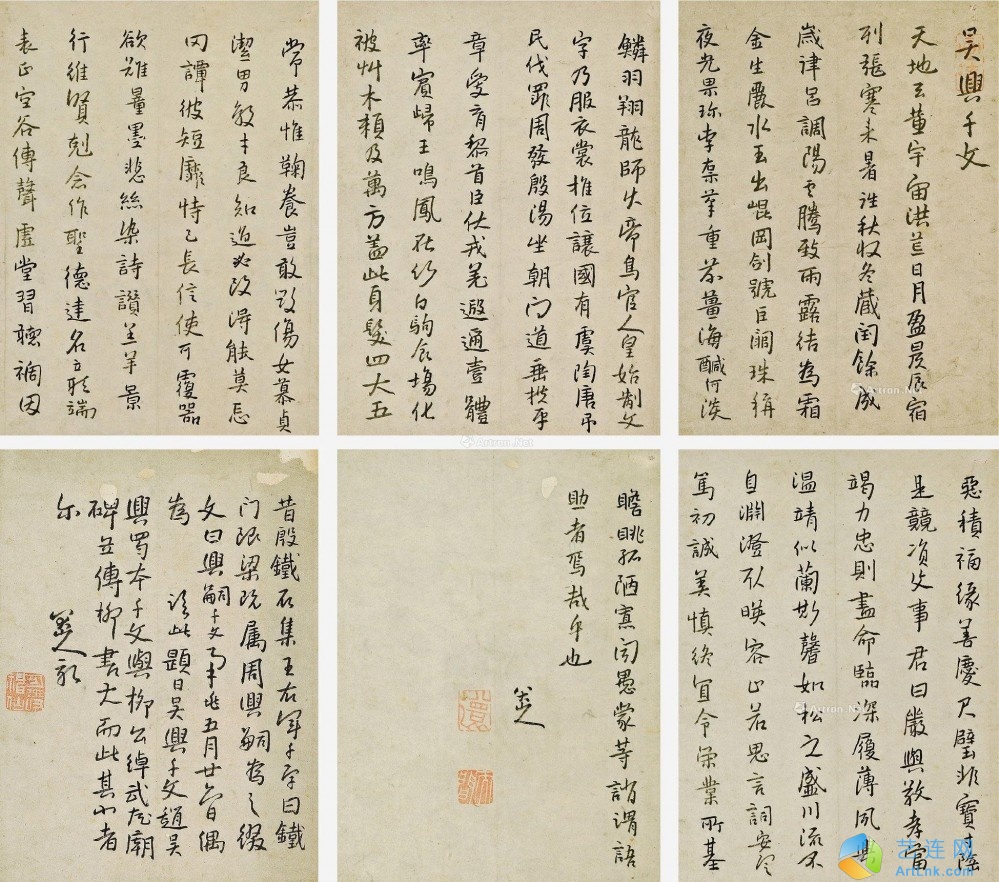 吴興千文
天地玄黄宇宙洪荒日月盈昃辰宿
列張寒来暑往秋收冬藏閏餘成
歲律呂調陽雲騰致雨露結為霜
金生麗水玉出崐岡劍號巨闕珠稱
夜光果珍李柰菜重芥薑海醎何淡
鱗羽翔龍師火帝鳥官人皇始制文
字乃服衣裳推位讓國有虞陶唐吊
民伐罪周發殷湯坐朝问道垂拱平
章愛育黎首臣伏戎羌遐邇壹體
率賓歸王鳴鳳在竹白駒食場化
被艸木賴及萬方蓋此身髮四大五
常恭惟鞠養豈敢毀傷女慕貞
潔男效才良知過必改得能莫忘
罔譚彼短靡恃己長信使可覆器
欲難量墨悲絲染詩讚羔羊景
行維賢剋念作聖德建名立形端
表正空谷傳聲虛堂習聽禍因
惡積福緣善慶尺璧非寶陰
是競資父事君曰嚴與敬孝當
竭力忠則盡命臨深履薄夙興
溫凊似蘭斯馨如松之盛川流不
息淵澄取暎容止若思言詞安定
篤初誠美慎終宜令榮業所基
瞻眺孤陋寡闻愚蒙等誚謂語
助者焉哉乎也
八大山人
昔殷鐵石集王右軍千字曰鐵
门限梁既属周興嗣為之缀
文曰興嗣千文五月廿日偶
為此題曰吴興千文趙吴
興蜀本千文與柳公綽武侯廟
碑並傳柳書大而此其小者
尔
八大山人記
Artron.Net
艺连网
ArtLnk.com